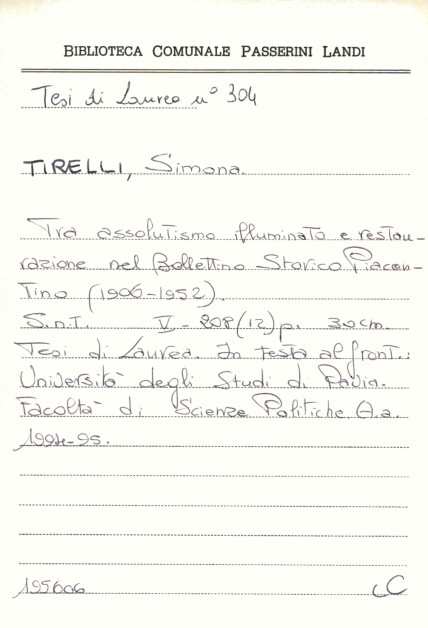 BIBLIOTECA COMUNALE PASSERINI LANDI
Tesi di Laurea n° 304
TIRELLI, Simona.
Tra assolutismo illuminato e restau-
razione nel Bollettino Storico Piacen-
tino (1906-1952).
S.n.t. V-208(12)p. 30cm.
Tesi di Laurea. In testa al front.:
Università degli Studi di Pavia.
Facoltà di Scienze Politiche. A.a.
1994-95.
195606 LC